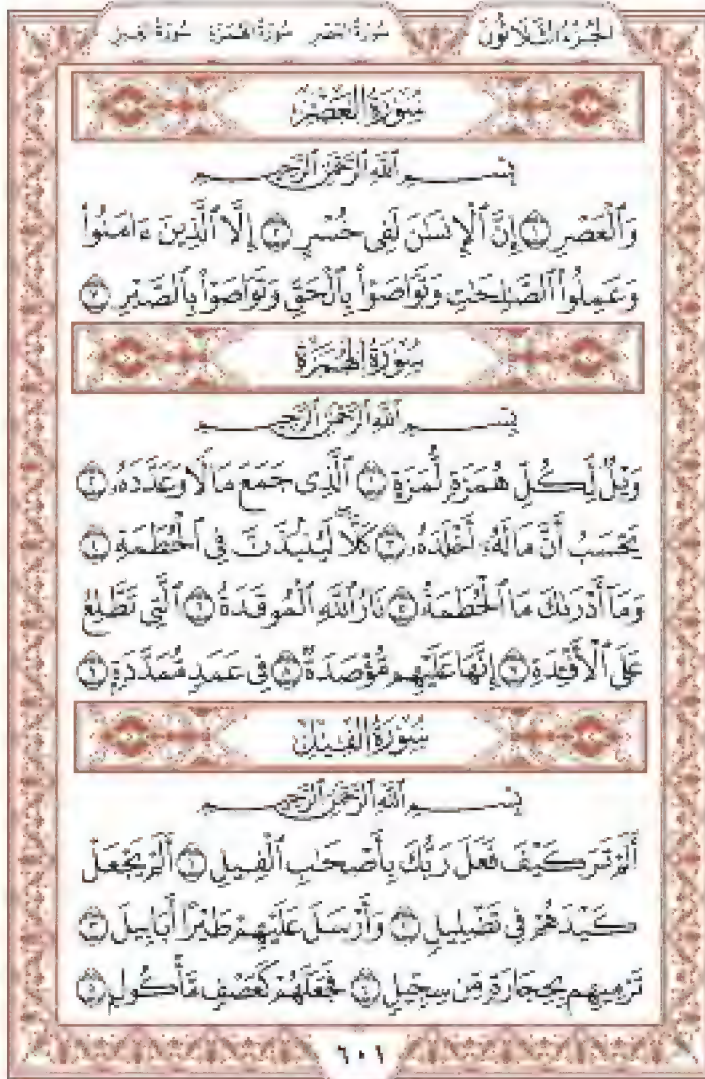 الجُزْءُ الثَّلَاثُونَ سُورَةُ العَصْرِ سُورَةُ الهُمَزَةِ سُورَةُ الفِيلِ
سُورَةُ العَصْرِ
بِسْمِ ٱللَّهِ ٱلرَّحْمَٰنِ ٱلرَّحِيمِ
وَٱلْعَصْرِ ١ إِنَّ ٱلْإِنسَٰنَ لَفِى خُسْرٍ ٢ إِلَّا ٱلَّذِينَ ءَامَنُوا۟
وَعَمِلُوا۟ ٱلصَّٰلِحَٰتِ وَتَوَاصَوْا۟ بِٱلْحَقِّ وَتَوَاصَوْا۟ بِٱلصَّبْرِ ٣
سُورَةُ الهُمَزَةِ
بِسْمِ ٱللَّهِ ٱلرَّحْمَٰنِ ٱلرَّحِيمِ
وَيْلٌ لِّكُلِّ هُمَزَةٍ لُّمَزَةٍ ١ ٱلَّذِى جَمَعَ مَالًا وَعَدَّدَهُۥ ٢
يَحْسَبُ أَنَّ مَالَهُۥٓ أَخْلَدَهُۥ ٣ كَلَّا لَيُنۢبَذَنَّ فِى ٱلْحُطَمَةِ ٤
وَمَآ أَدْرَىٰكَ مَا ٱلْحُطَمَةُ ٥ نَارُ ٱللَّهِ ٱلْمُوقَدَةُ ٦ ٱلَّتِى تَطَّلِعُ
عَلَى ٱلْأَفْـِٔدَةِ ٧ إِنَّهَا عَلَيْهِم مُّؤْصَدَةٌ ٨ فِى عَمَدٍ مُّمَدَّدَةٍۭ ٩
سُورَةُ الفِيلِ
بِسْمِ ٱللَّهِ ٱلرَّحْمَٰنِ ٱلرَّحِيمِ
أَلَمْ تَرَ كَيْفَ فَعَلَ رَبُّكَ بِأَصْحَٰبِ ٱلْفِيلِ ١ أَلَمْ يَجْعَلْ
كَيْدَهُمْ فِى تَضْلِيلٍ ٢ وَأَرْسَلَ عَلَيْهِمْ طَيْرًا أَبَابِيلَ ٣
تَرْمِيهِم بِحِجَارَةٍ مِّن سِجِّيلٍ ٤ فَجَعَلَهُمْ كَعَصْفٍ مَّأْكُولٍۭ ٥
٦٠١